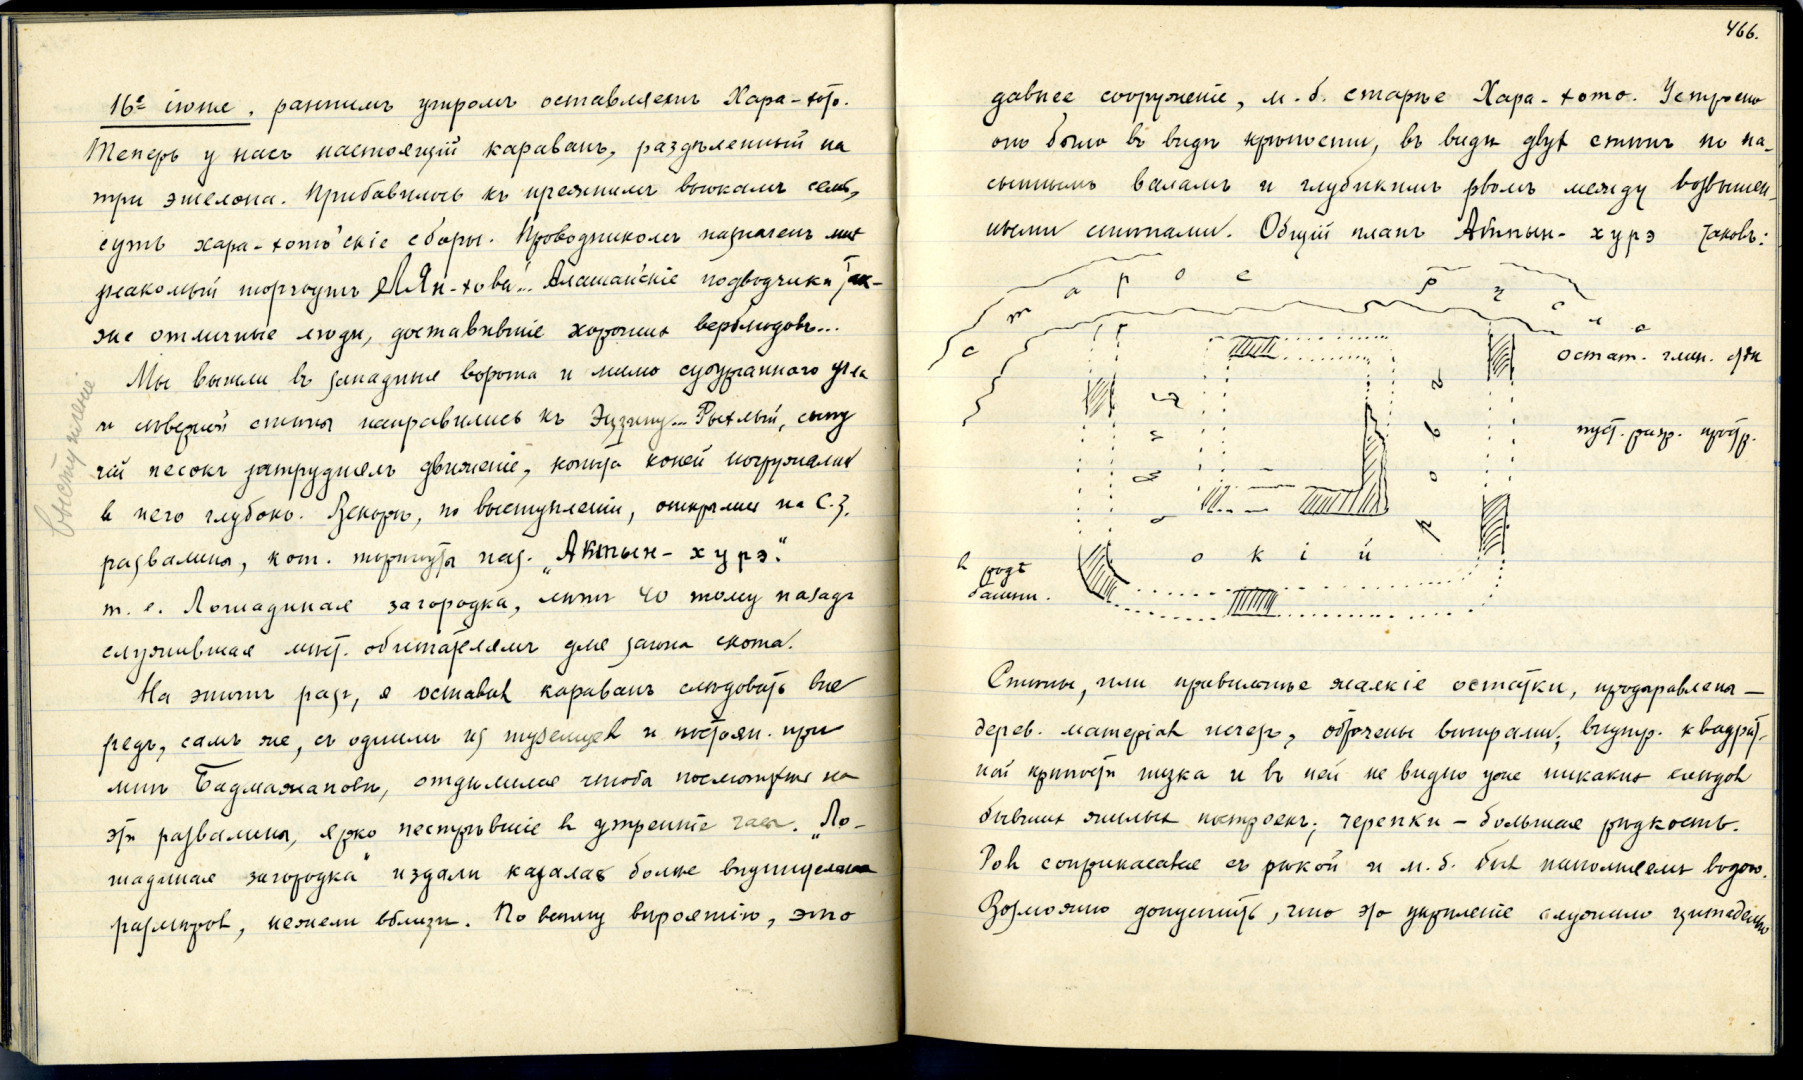 466.
16е іюня, раннимъ утромъ оставляемъ Хара-хото.
Теперь у насъ настоящій караванъ, раздѣленный на
три эшелона. Прибавилось къ прежнимъ вьюкамъ
суть хара-хото'скіе сборы. Проводникомъ назначенъ мнѣ
знакомый торгоутъ Алашаńскіе подводчики так-
же отличные люди, доставившіе хорошихъ верблюдовъ...
Мы вышли въ западныя ворота и мимо субурганнаго угла
и сѣверной стѣны направились къ Эцзину... Рыхлый, сыпу
чій песокъ затруднялъ движеніе, копыта коней погружались
в него глубоко. Вскорѣ, по выступленіи, открылись на С.З.
развалины, кот. торгоуты наз. „Актын-хурэ."
т. е. Лошадиная загородка, лѣтъ 40 тому назадъ
служившая мѣст. обитателямъ для загона скота.
На этотъ разъ, я оставивъ караванъ слѣдовать впе
редъ, самъ же, съ однимъ из туземцев и постоян. при
мнѣ Бадмажаповѣ, отдѣлился чтобы посмотрѣть на
эти развалины, ярко пестрѣвшіе в утренніе часы. „Ло-
шадиная загородка" издали казалась болѣе внушительна
размѣров, нежели вблизи. По всему вѣроятію, это
выступленіе
давнее сооруженіе, м. б. старѣе Хара-хото. Устроено
оно было въ видѣ крѣпости, въ видѣ двух стѣнъ по на-
сыпнымъ валамъ и глубокимъ рвомъ между возвышен-
ными стѣнами. Общій планъ Актын-хурэ таковъ:
с т а р о е р у с л о
остат. глин. стѣн
пуст. разр. простр.
г л у б о к і й р о в ъ
в родѣ
башни.
Стѣны, или правильнѣе жалкіе остатки, продыравлены —
дерев. матеріал исчезъ, обточены вѣтрами; внутр. квадрат-
ной крѣпости низка и въ ней не видно уже никакихъ слѣдов
бывшихъ жилыхъ построекъ; черепки - большая рѣдкость.
Ров соприкасался съ рѣкой и м. б. был наполняемъ водою.
Возможно допустить, что это укрѣпленіе служило цитаделью